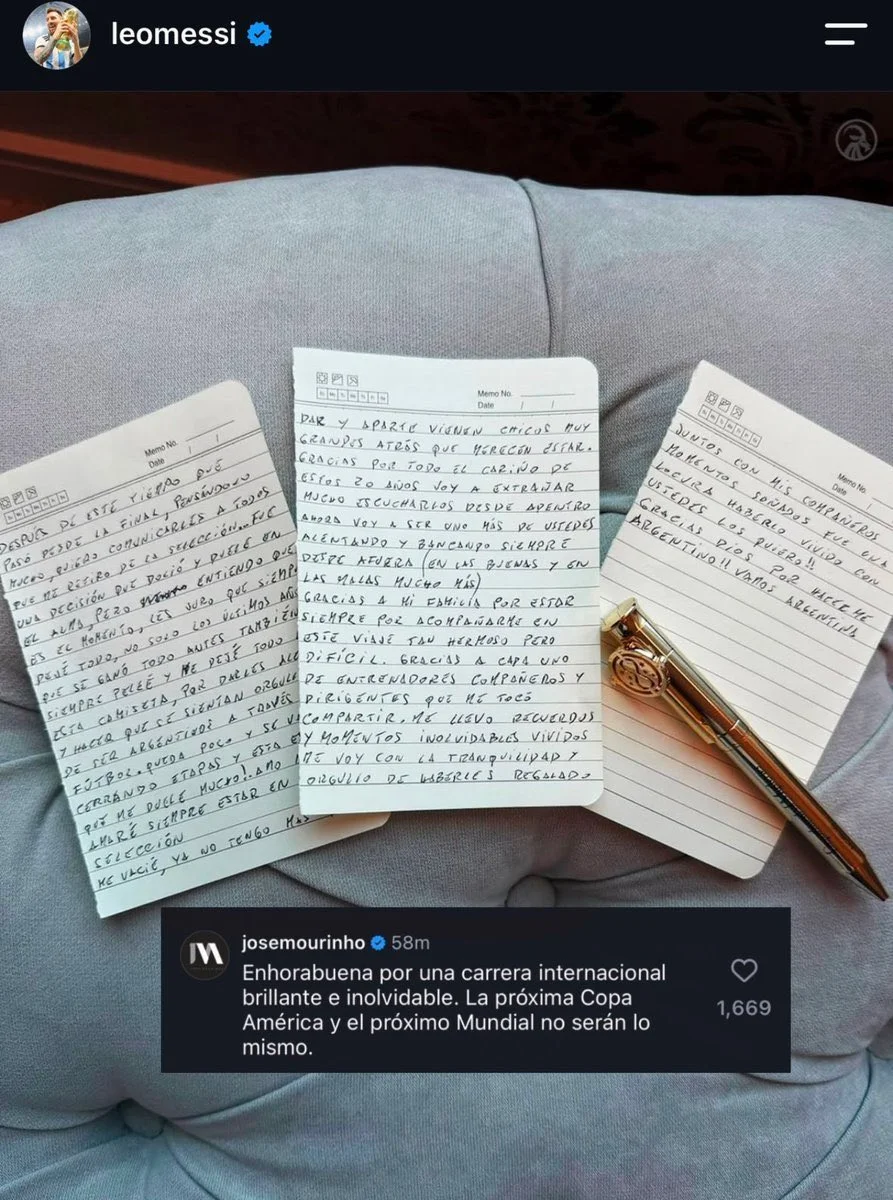 leomessi
Memo No.
Date / /
DESPUÉS DE ESTE TIEMPO QUE
PASÓ DESDE LA FINAL, PENSÁNDOLO
MUCHO, QUIERO COMUNICARLES A TODOS
QUE ME RETIRO DE LA SELECCIÓN. FUE
UNA DECISIÓN QUE DOLIÓ Y DUELE EN
EL ALMA, PERO ENTIENDO QUE
ES EL MOMENTO, LES JURO QUE SIEMP
DEJÉ TODO, NO SOLO LOS ÚLTIMOS AÑ
QUE SE GANÓ TODO ANTES TAMBIÉN
SIEMPRE PELEÉ Y ME DEJÉ TODO
ESTA CAMISETA, POR DARLES ALE
Y HACER QUE SE SIENTAN ORGULL
DE SER ARGENTINOS A TRAVÉS
FÚTBOL. QUEDA POCO Y SE VA
CERRANDO ETAPAS Y ESTA E
QUE ME DUELE MUCHO! AMO
AMARÉ SIEMPRE ESTAR EN
SELECCIÓN
ME VACIÉ, YA NO TENGO MAS
Memo No.
Date / /
DAR Y APARTE VIENEN CHICOS MUY
GRANDES ATRÁS QUE MERECEN ESTAR.
GRACIAS POR TODO EL CARIÑO DE
ESTOS 20 AÑOS VOY A EXTRAÑAR
MUCHO ESCUCHARLOS DESDE ADENTRO
AHORA VOY A SER UNO MÁS DE USTEDES
ALENTANDO Y BANCANDO SIEMPRE
DESDE AFUERA (EN LAS BUENAS Y EN
LAS MALAS MUCHO MÁS)
GRACIAS A MI FAMILIA POR ESTAR
SIEMPRE POR ACOMPAÑARME EN
ESTE VIAJE TAN HERMOSO PERO
DIFÍCIL. GRACIAS A CADA UNO
DE ENTRENADORES COMPAÑEROS Y
DIRIGENTES QUE ME TOCÓ
COMPARTIR. ME LLEVO RECUERDOS
Y MOMENTOS INOLVIDABLES VIVIDOS
ME VOY CON LA TRANQUILIDAD Y
ORGULLO DE HABERLES REGALADO
Memo No.
Date /
JUNTOS CON MIS COMPAÑEROS
MOMENTOS SOÑADOS FUE UNA
LOCURA HABERLO VIVIDO CON
USTEDES LOS QUIERO!!
GRACIAS DIOS POR HACERME
ARGENTINO!! VAMOS ARGENTINA
josemourinho 58m
Enhorabuena por una carrera internacional
brillante e inolvidable. La próxima Copa
América y el próximo Mundial no serán lo
mismo.
1,669